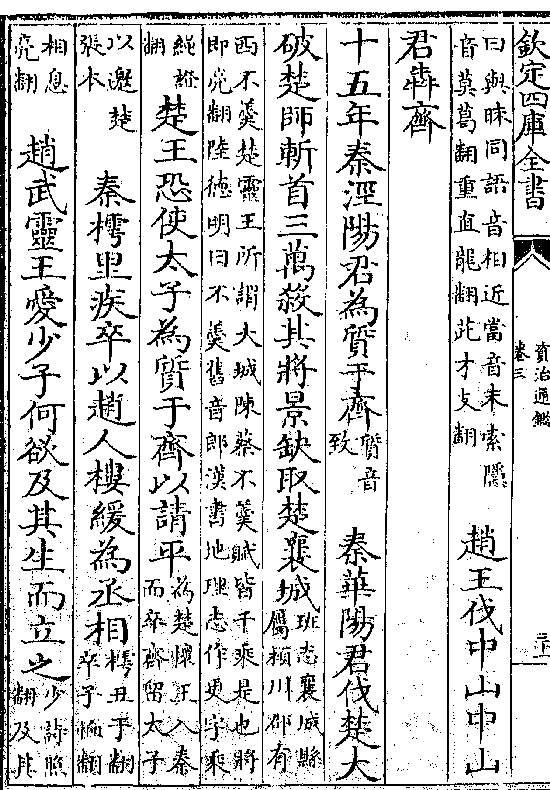 欽定四庫全書
資治通鑑
卷三
曰與昧同語音相近當音末索隱
音莫葛翻重直龍翻茈才支翻
趙王伐中山中山
君犇齊
十五年秦涇陽君為質于齊
質音
致
秦華陽君伐楚大
破楚師斬首三萬殺其將景缺取楚襄城
班志襄城縣
屬潁川郡有
西不羮楚靈王所謂大城陳蔡不羮賦皆千乘是也將
即亮翻陸德明曰不羮舊音郎漢書地理志作更字乘
繩證
翻
楚王恐使太子為質于齊以請平
為楚懷王入秦
而卒齊留太子
以邀楚
張本
秦樗里疾卒以趙人樓緩為丞相
樗丑于翻
卒子恤翻
相息
亮翻
趙武靈王愛少子何欲及其生而立之
少詩照
翻及其